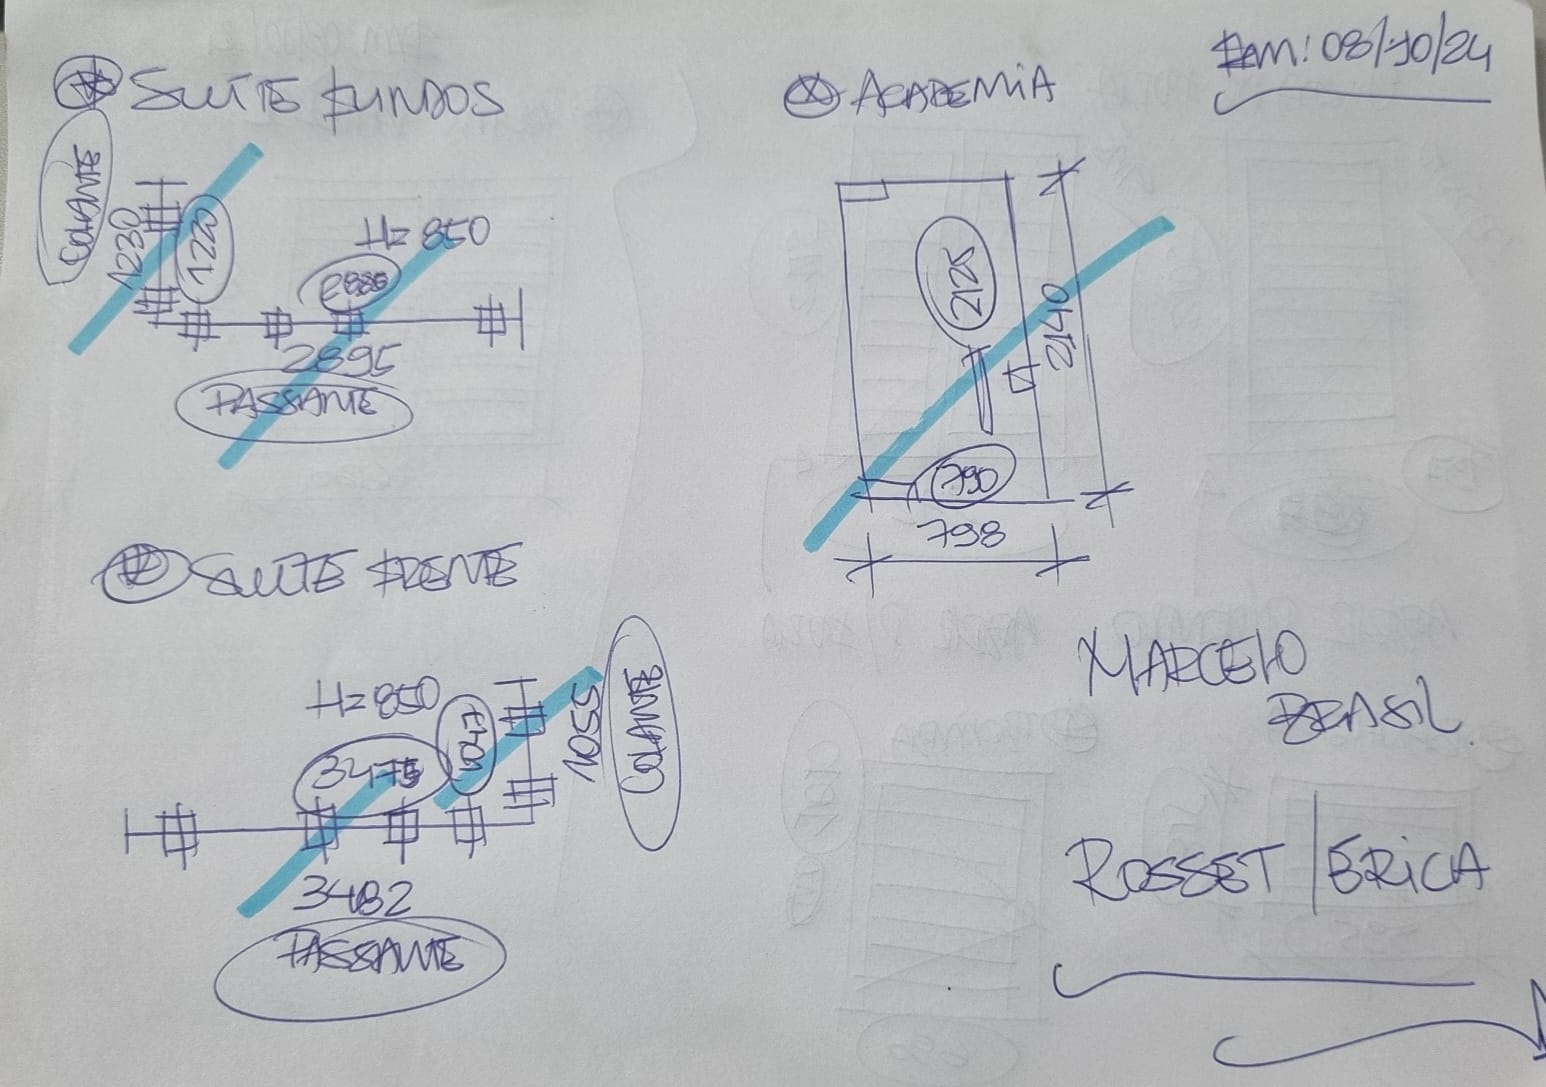 EM: 08/10/24
SUÍTE FUNDOS
COLANTE
1230
1220
H=850
2880
2895
PASSANTE
ACADEMIA
2125
2140
790
798
SUÍTE FRENTE
H=850
3475
1047
1055
COLANTE
3482
PASSANTE
MARCELO
BRASIL.
ROSSET / ERICA